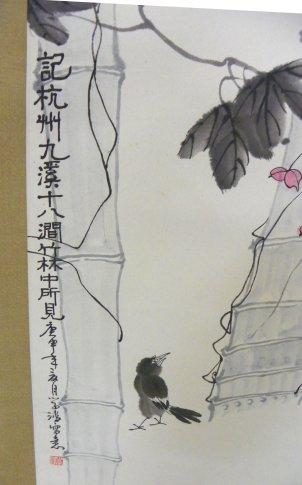 記杭州九溪十八澗竹林中所見庚申年三月
寫意